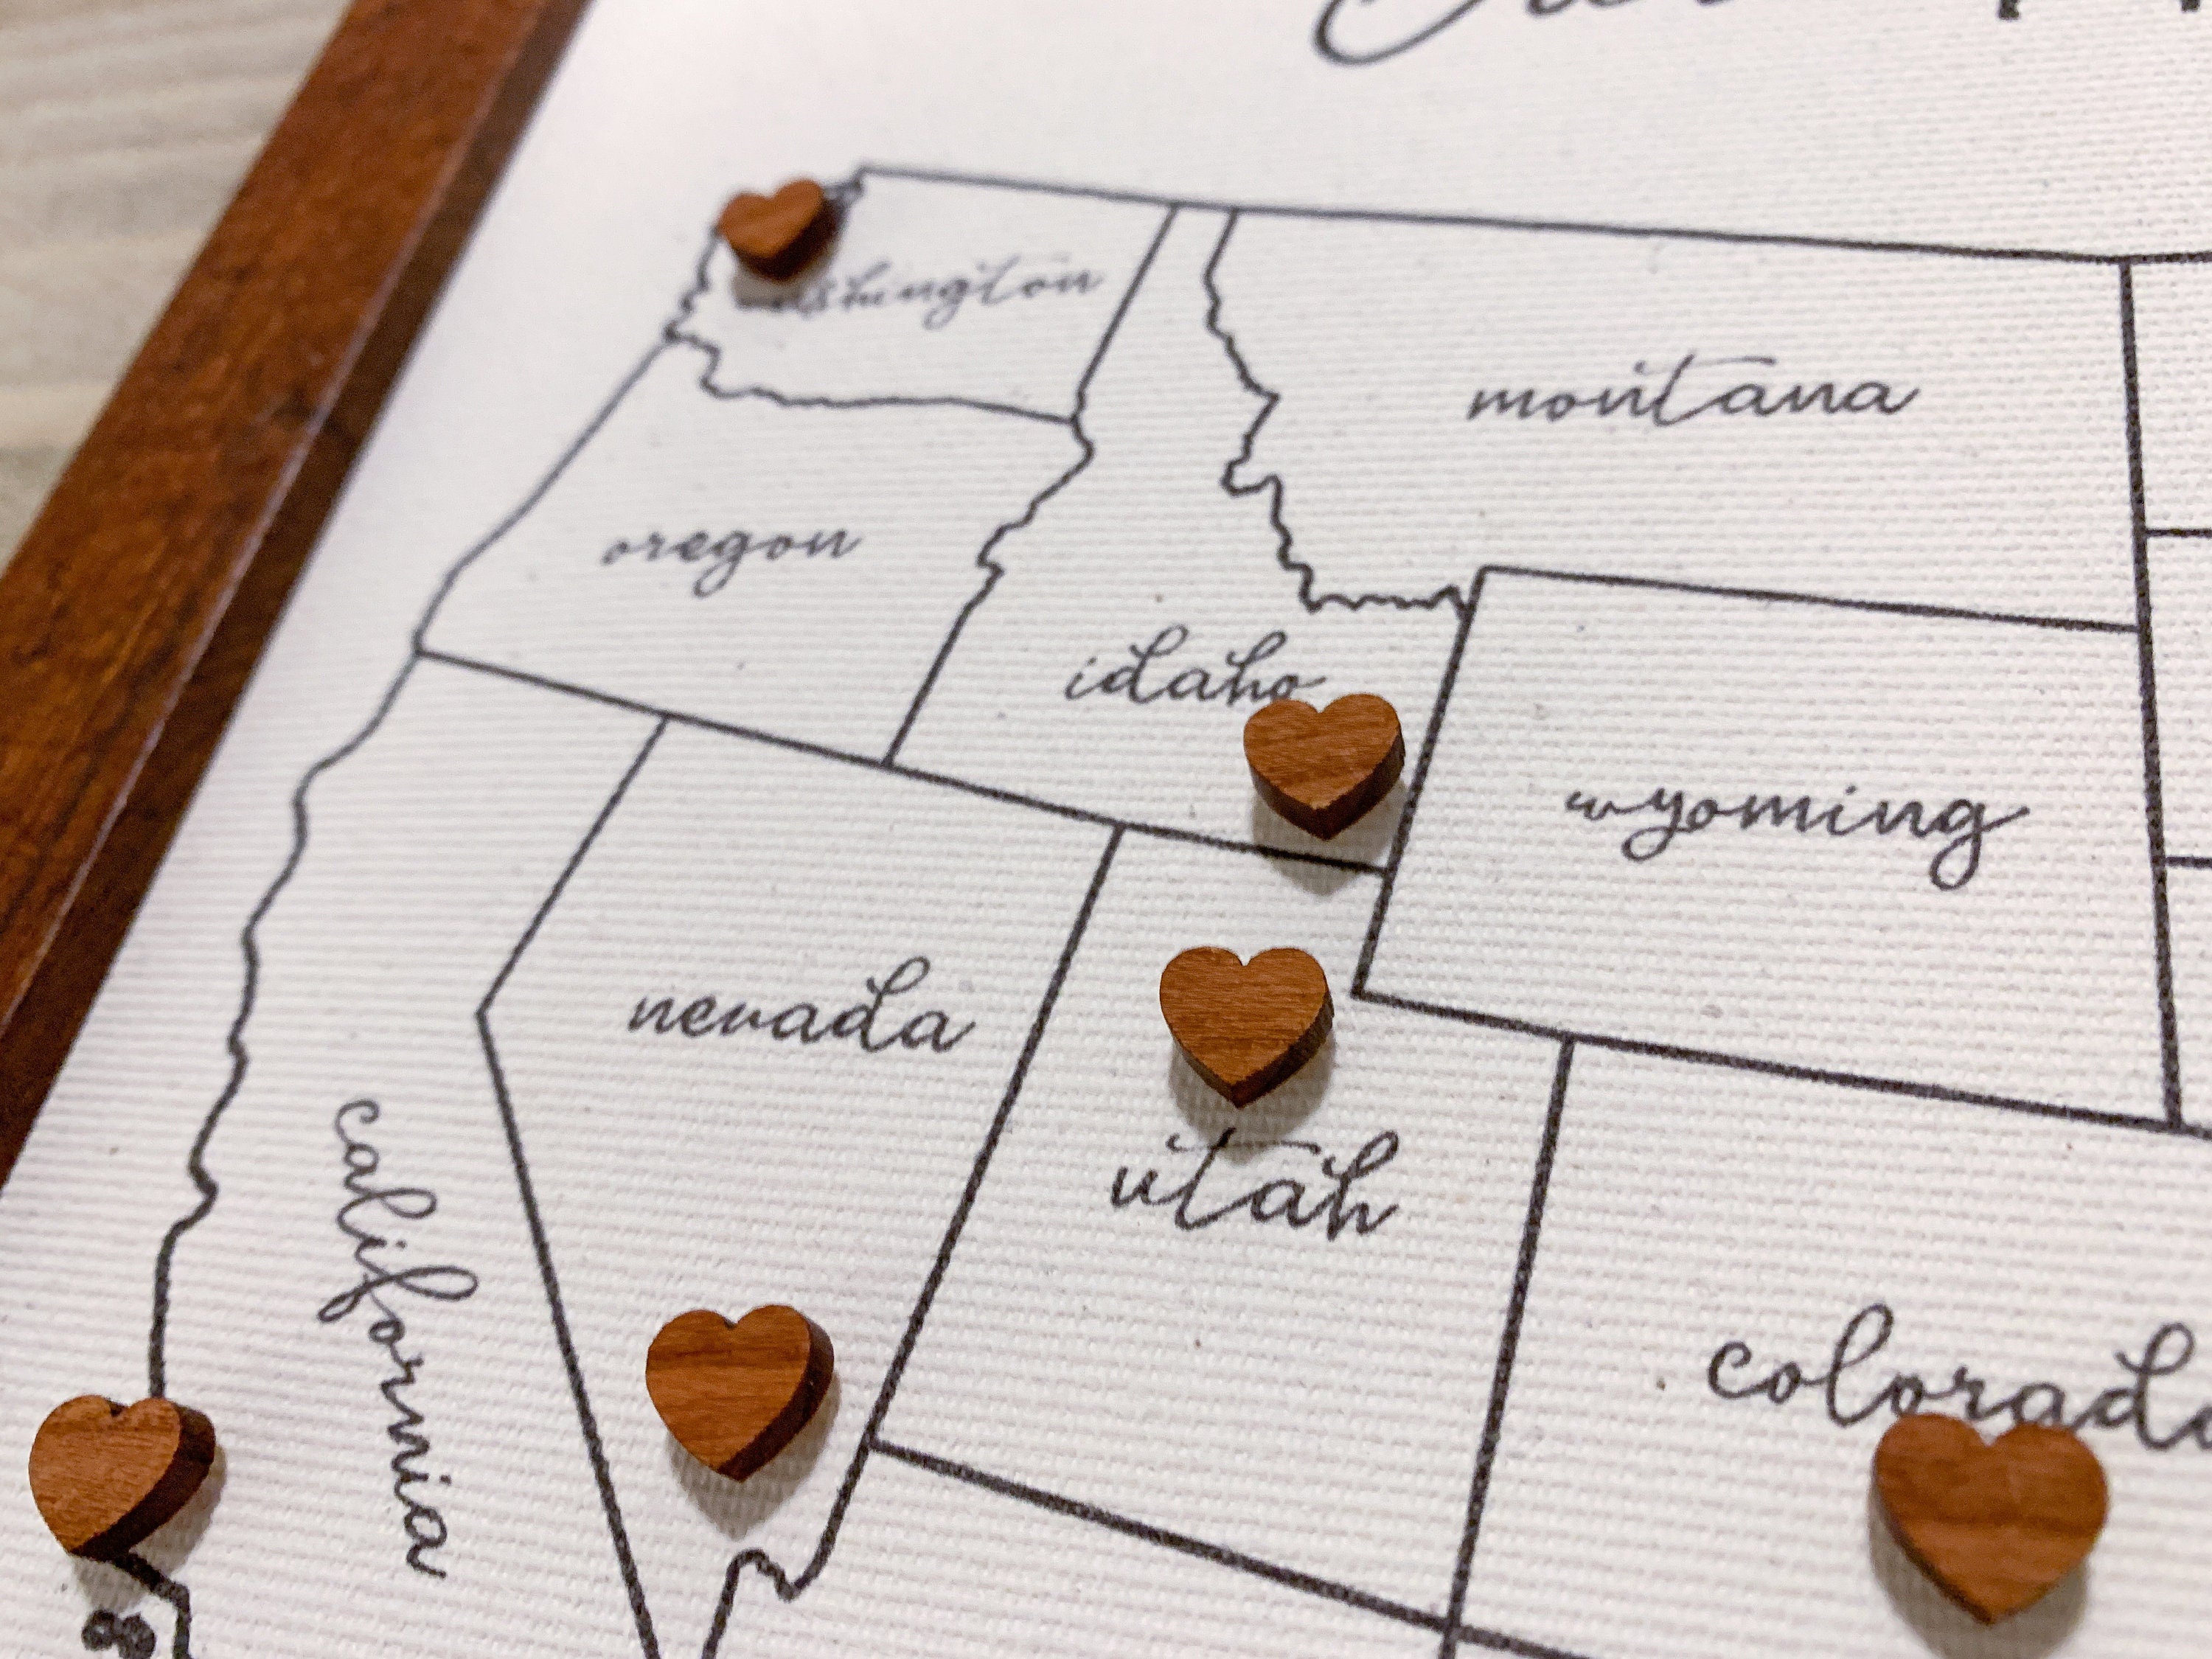 washington
montana
oregon
idaho
wyoming
nevada
utah
california
colorado